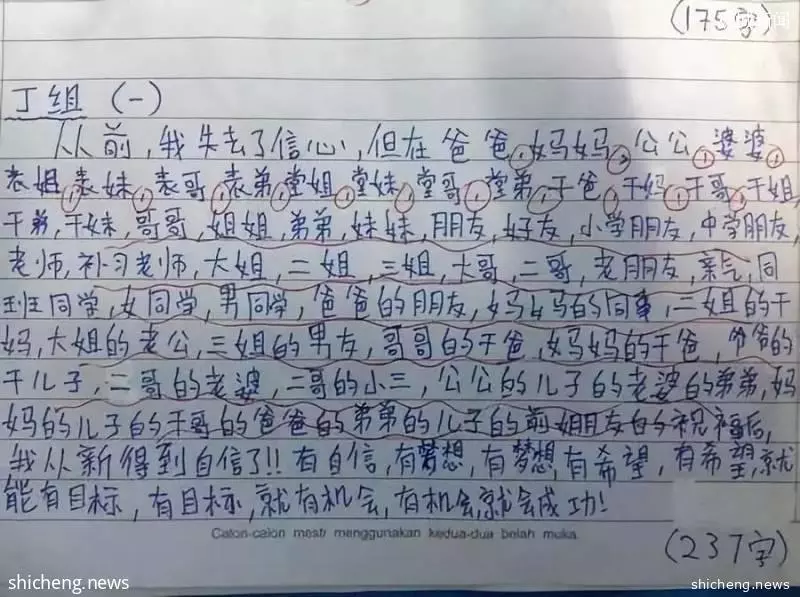 (175字)
丁组 (一)
从前,我失去了信心,但在爸爸,妈妈,公公,婆婆,
表姐,表妹,表哥,表弟,堂姐,堂妹,堂哥,堂弟,干爸,干妈,干哥,干姐,
干弟,干妹,哥哥,姐姐,弟弟,妹妹,朋友,好友,小学朋友,中学朋友,
老师,补习老师,大姐,二姐,三姐,大哥,二哥,老朋友,亲气,同
班同学,女同学,男同学,爸爸的朋友,妈妈的同事,二姐的干
妈,大姐的老公,三姐的男友,哥哥的干爸,妈妈的干爸,爷爷的
干儿子,二哥的老婆,二哥的小三,公公的儿子的老婆的弟弟,妈
妈的儿子的干哥的爸爸的弟弟的儿子的前女朋友的祝福后,
我从新得到自信了!!有自信,有梦想,有梦想,有希望,有希望,就
能有目标,有目标,就有机会,有机会,就会成功!
Calon-calon mesti menggunakan kedua-dua belah muka.
(237字)
shicheng.news
shicheng.news